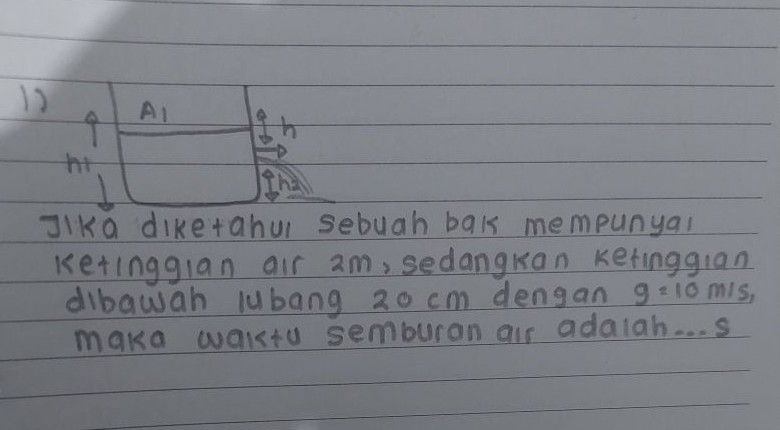 1)
A1
h
h1
h2
Jika diketahui sebuah bak mempunyai
ketinggian air 2m, sedangkan ketinggian
dibawah lubang 20 cm dengan g=10 m/s,
maka waktu semburan air adalah...s